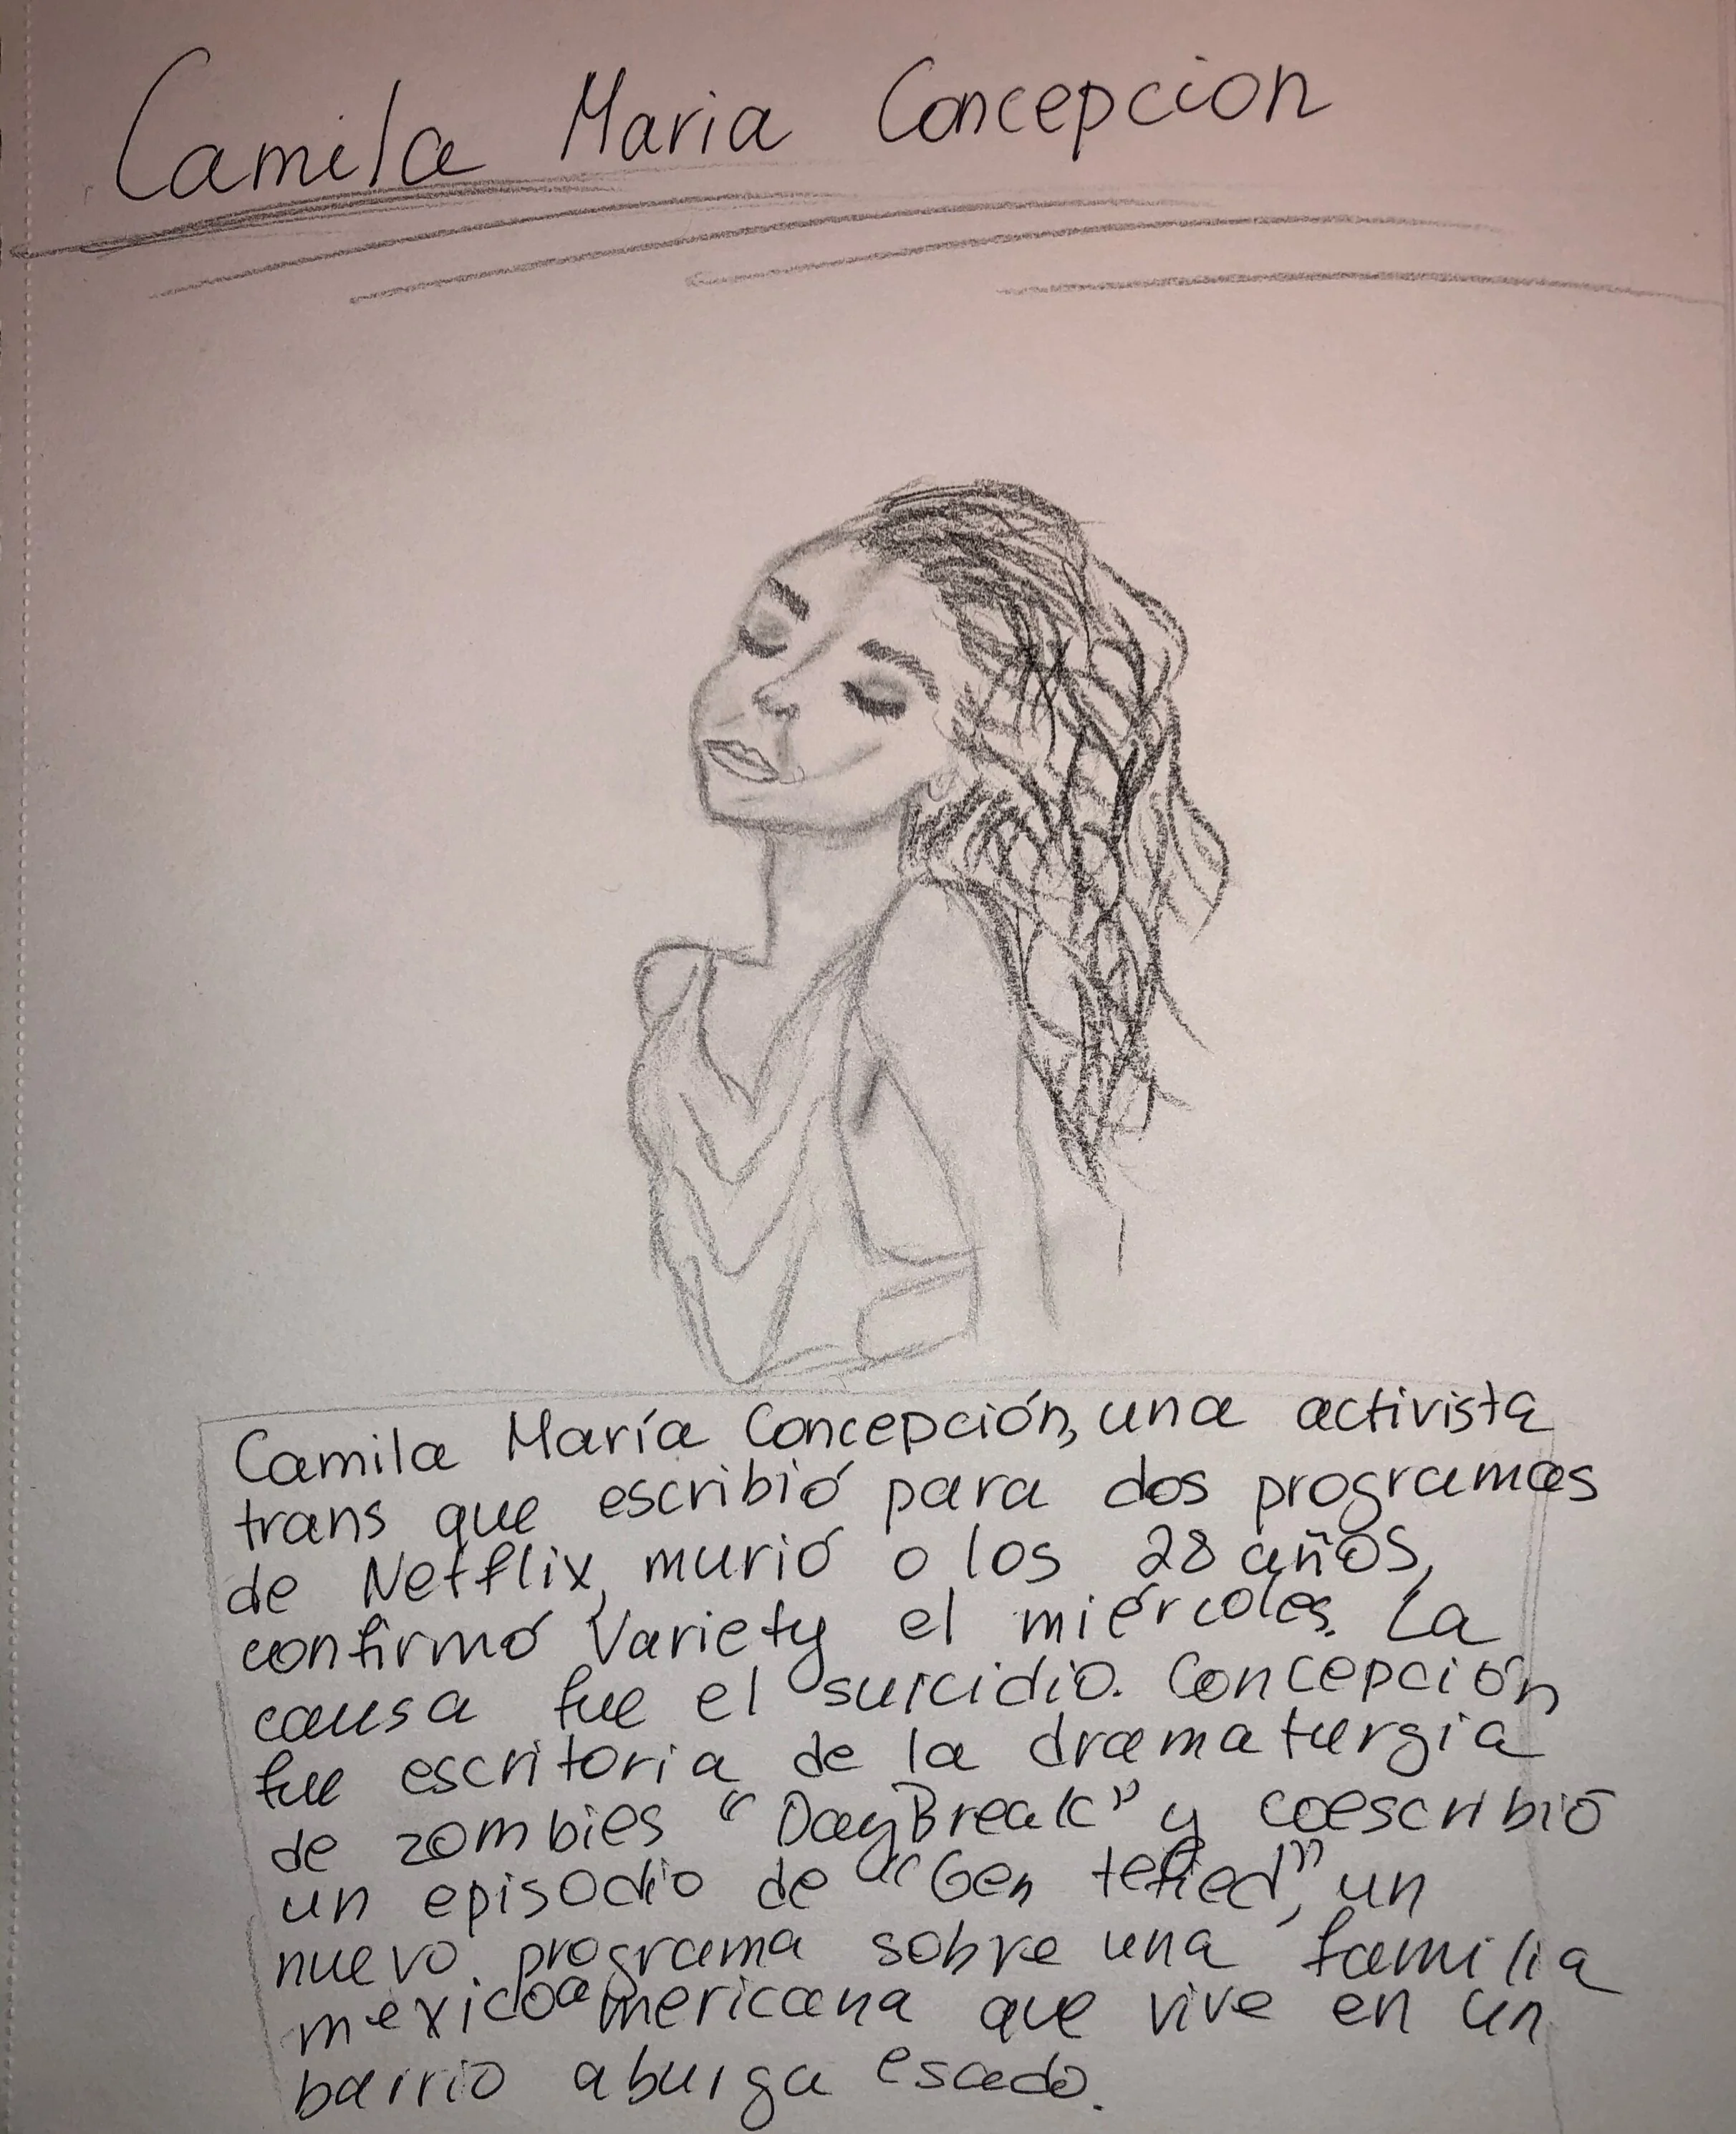 Camila Maria Concepcion
Camila María Concepción, una activista
trans que escribió para dos programas
de Netflix, murió a los 28 años,
confirmó Variety el miércoles. La
causa fue el suicidio. Concepción
fue escritoria de la dramaturgia
de zombies "DayBreak" y coescribió
un episodio de "Gentefied", un
nuevo programa sobre una familia
mexicoamericana que vive en un
barrio aburgaesado.